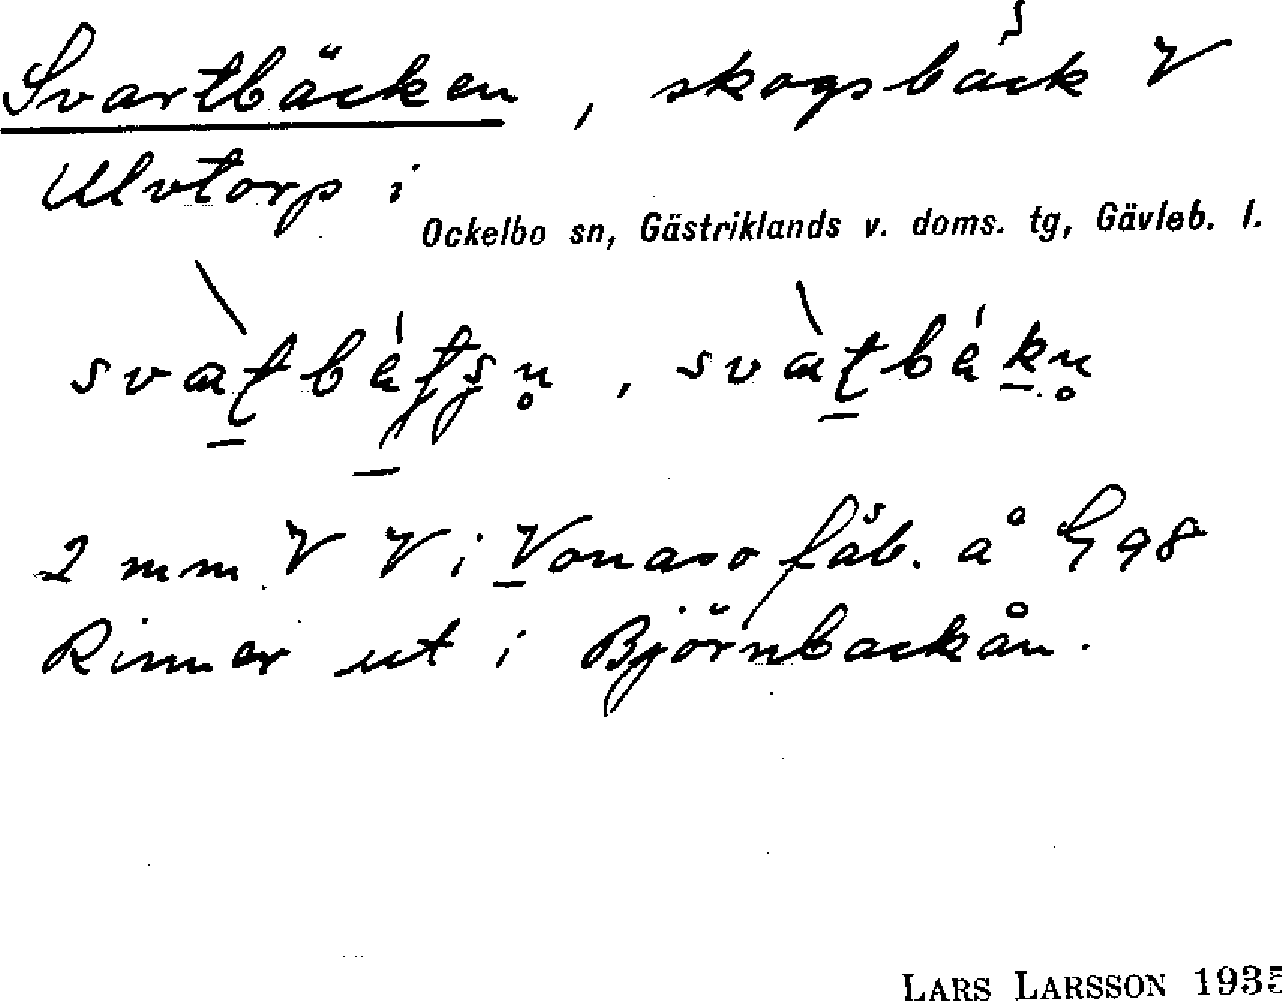 Svartbäcken, skogsbäck V
Ulvtorp i
Ockelbo sn, Gästriklands v. doms. tg, Gävleb. l.
2 mm V V i Vonaso fäb. å G 98
Rinner ut i Björnbackån.
LARS LARSSON 1935